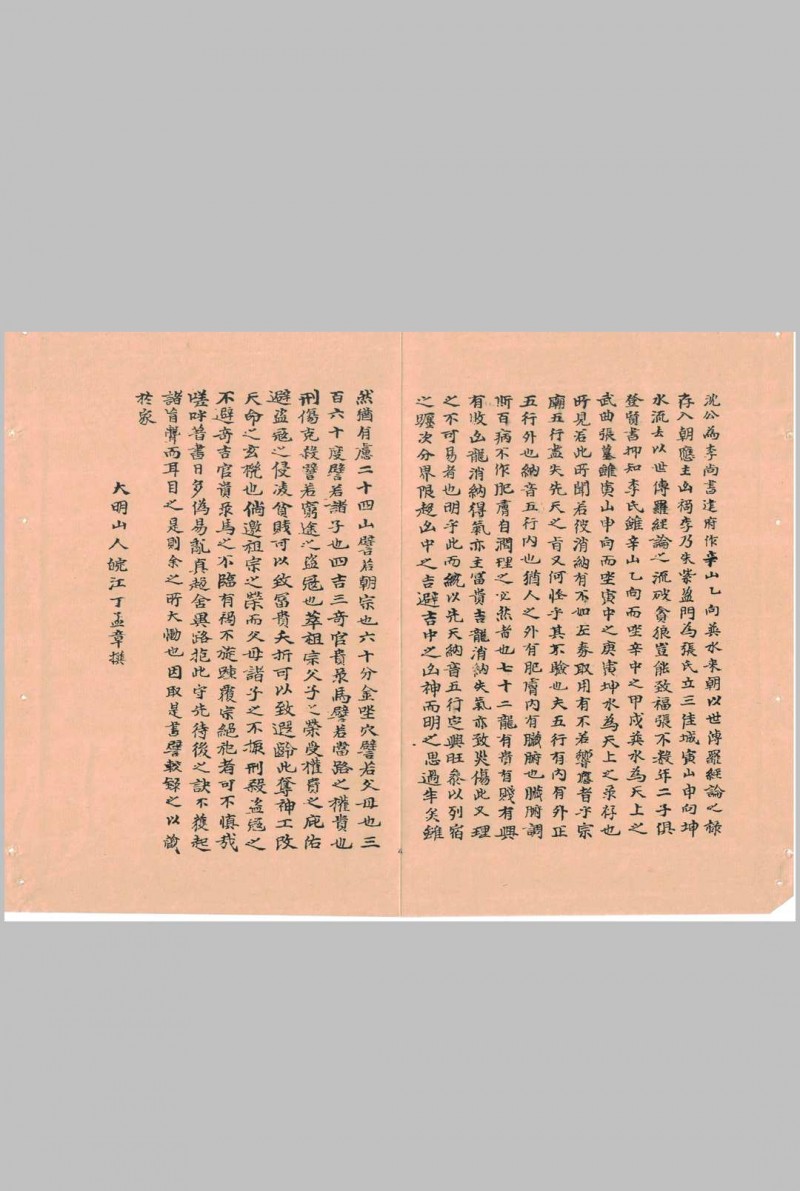 沈公為李尚書造府作辛山乙向巽水來朝以世傳羅經論之祿
存入朝應主凶禍李乃朱紫盈門為張氏立三洼城寅山申向坤
水流去以世傳羅經論之流破貪狼豈能致福張不數年二子俱
登賢書抑知李氏雖辛山乙向而坐辛中之甲戌巽水為天上之
武曲張墓雖寅山申向而坐寅中之庚寅坤水為天上之祿存也
所見若此所聞若彼消納有不如左券取用有不若響應者乎宗
廟五行盡失先天之旨又何怪乎其不驗也夫五行有內有外正
五行外也納音五行內也猶人之外有肥膚內有臟腑也臟腑調
斯百病不作肥膚自潤理之必然者也七十二龍有貴有賤有興
有敗凶龍消納得氣亦主富貴吉龍消納失氣亦致災傷此又理
之不可易者也明乎此而統以先天納音五行定興旺參以列宿
之躔次分界限趨凶中之吉避吉中之凶神而明之思過半矣雖
然猶有慮二十四山譬若朝宗也六十分金坐穴譬若父母也三
百六十度譬若諸子也四吉三奇官貴祿馬譬若當路之權貴也
刑傷克殺譬若窮途之盜寇也萃祖宗父子之榮受權貴之庇佑
避盜寇之侵凌貧賤可以致富貴夭折可以致遐齡此奪神工改
天命之玄機也倘邀祖宗之榮而父母諸子之不振刑殺盜寇之
不避奇吉官貴祿馬之不臨有禍不旋踵覆宗絕祀者可不慎哉
嗟呼普書日多偽易亂真趨舍異路抱此守先待後之訣不獲起
諸盲聾而耳目之是則余之所大慟也因取是書譬較録之以識
於家
大明山人皖江丁孟章撰